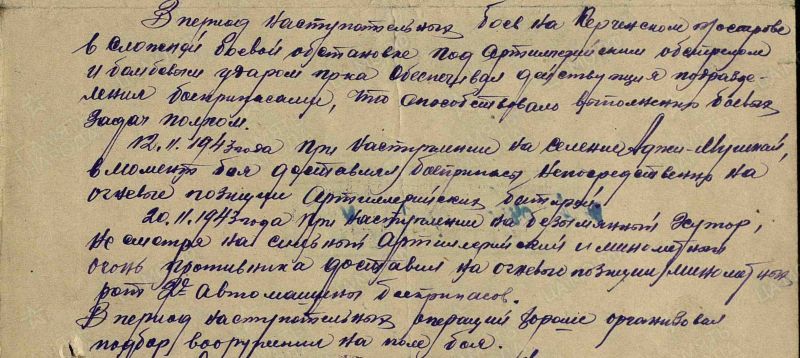 В период наступательных боев на Керченском полуострове
в сложной боевой обстановке под Артиллерийским обстрелом
и бомбовым ударом пр-ка обеспечивал действующия подразде-
ления боеприпасами, что способствовало выполнению боевых
задач полком.
12.11.1943 года при наступлении на селение Аджи-Мушкай,
в момент боя доставлял боеприпасы непосредственно на
огневые позиции Артиллерийских батарей.
20.11.1943 года при наступлении на безымянный Хутор,
не смотря на сильный Артиллерийский и минометный
огонь противника доставил на огневые позиции минометных
рот 2е Автомашины боеприпасов.
В период наступательных операций хорошо организовал
подбор вооружения на поле боя.